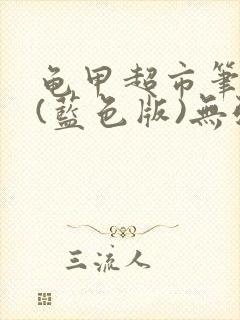 龟甲超市筆
(藍色版)無
三流人